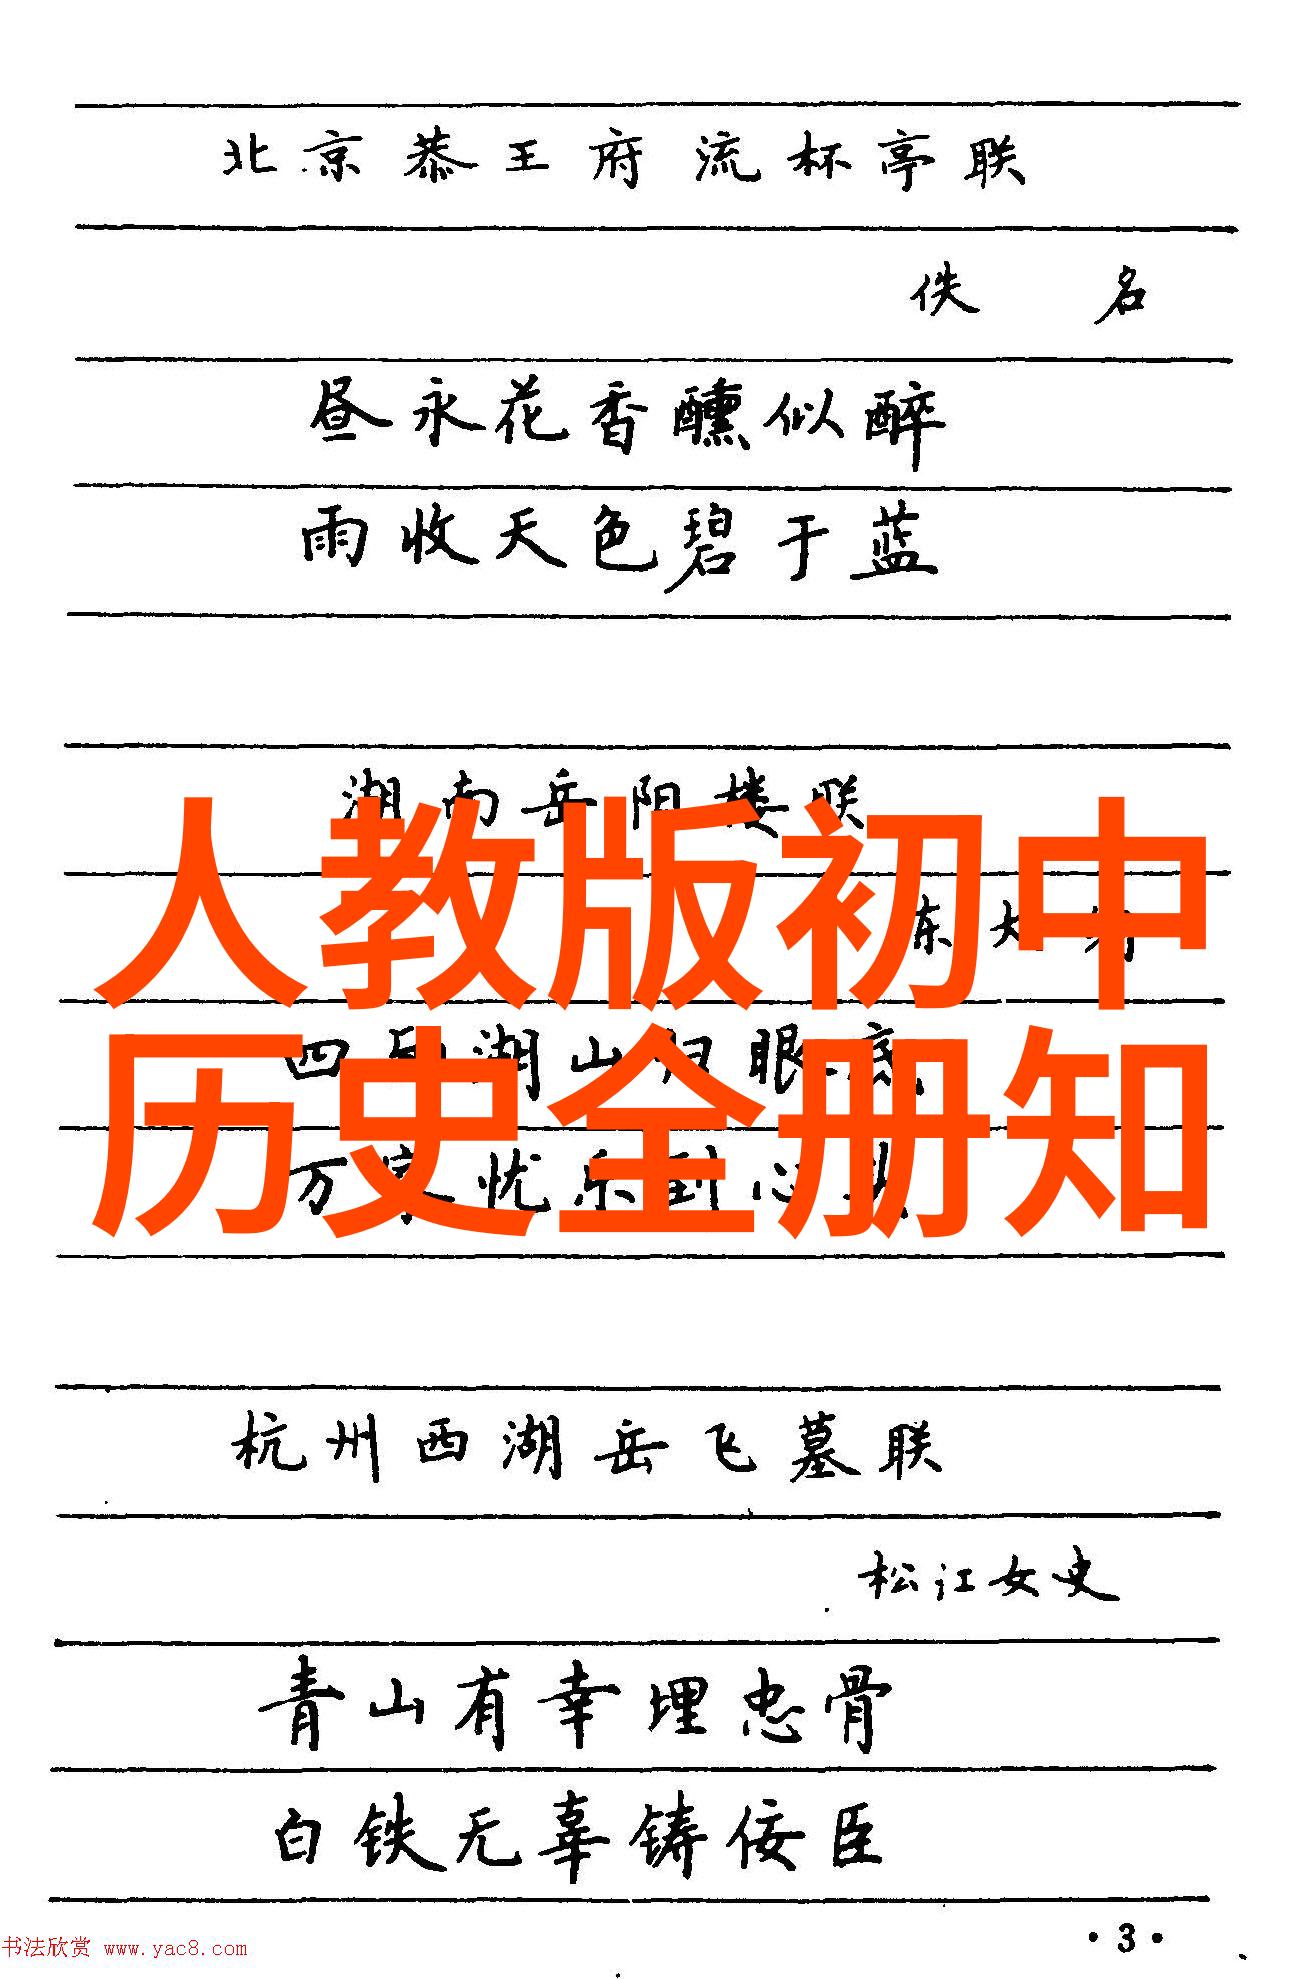 北京恭王府流杯亭联
佚 名
昼永花香醺似醉
雨收天色碧于蓝
湖南岳阳楼联
人教版初中
四面湖山归眼底
历史全册知
万家忧乐到心头
杭州西湖岳飞墓联
松江女史
青山有幸埋忠骨
白铁无辜铸佞臣
·3·
书法欣赏 www.yac8.com